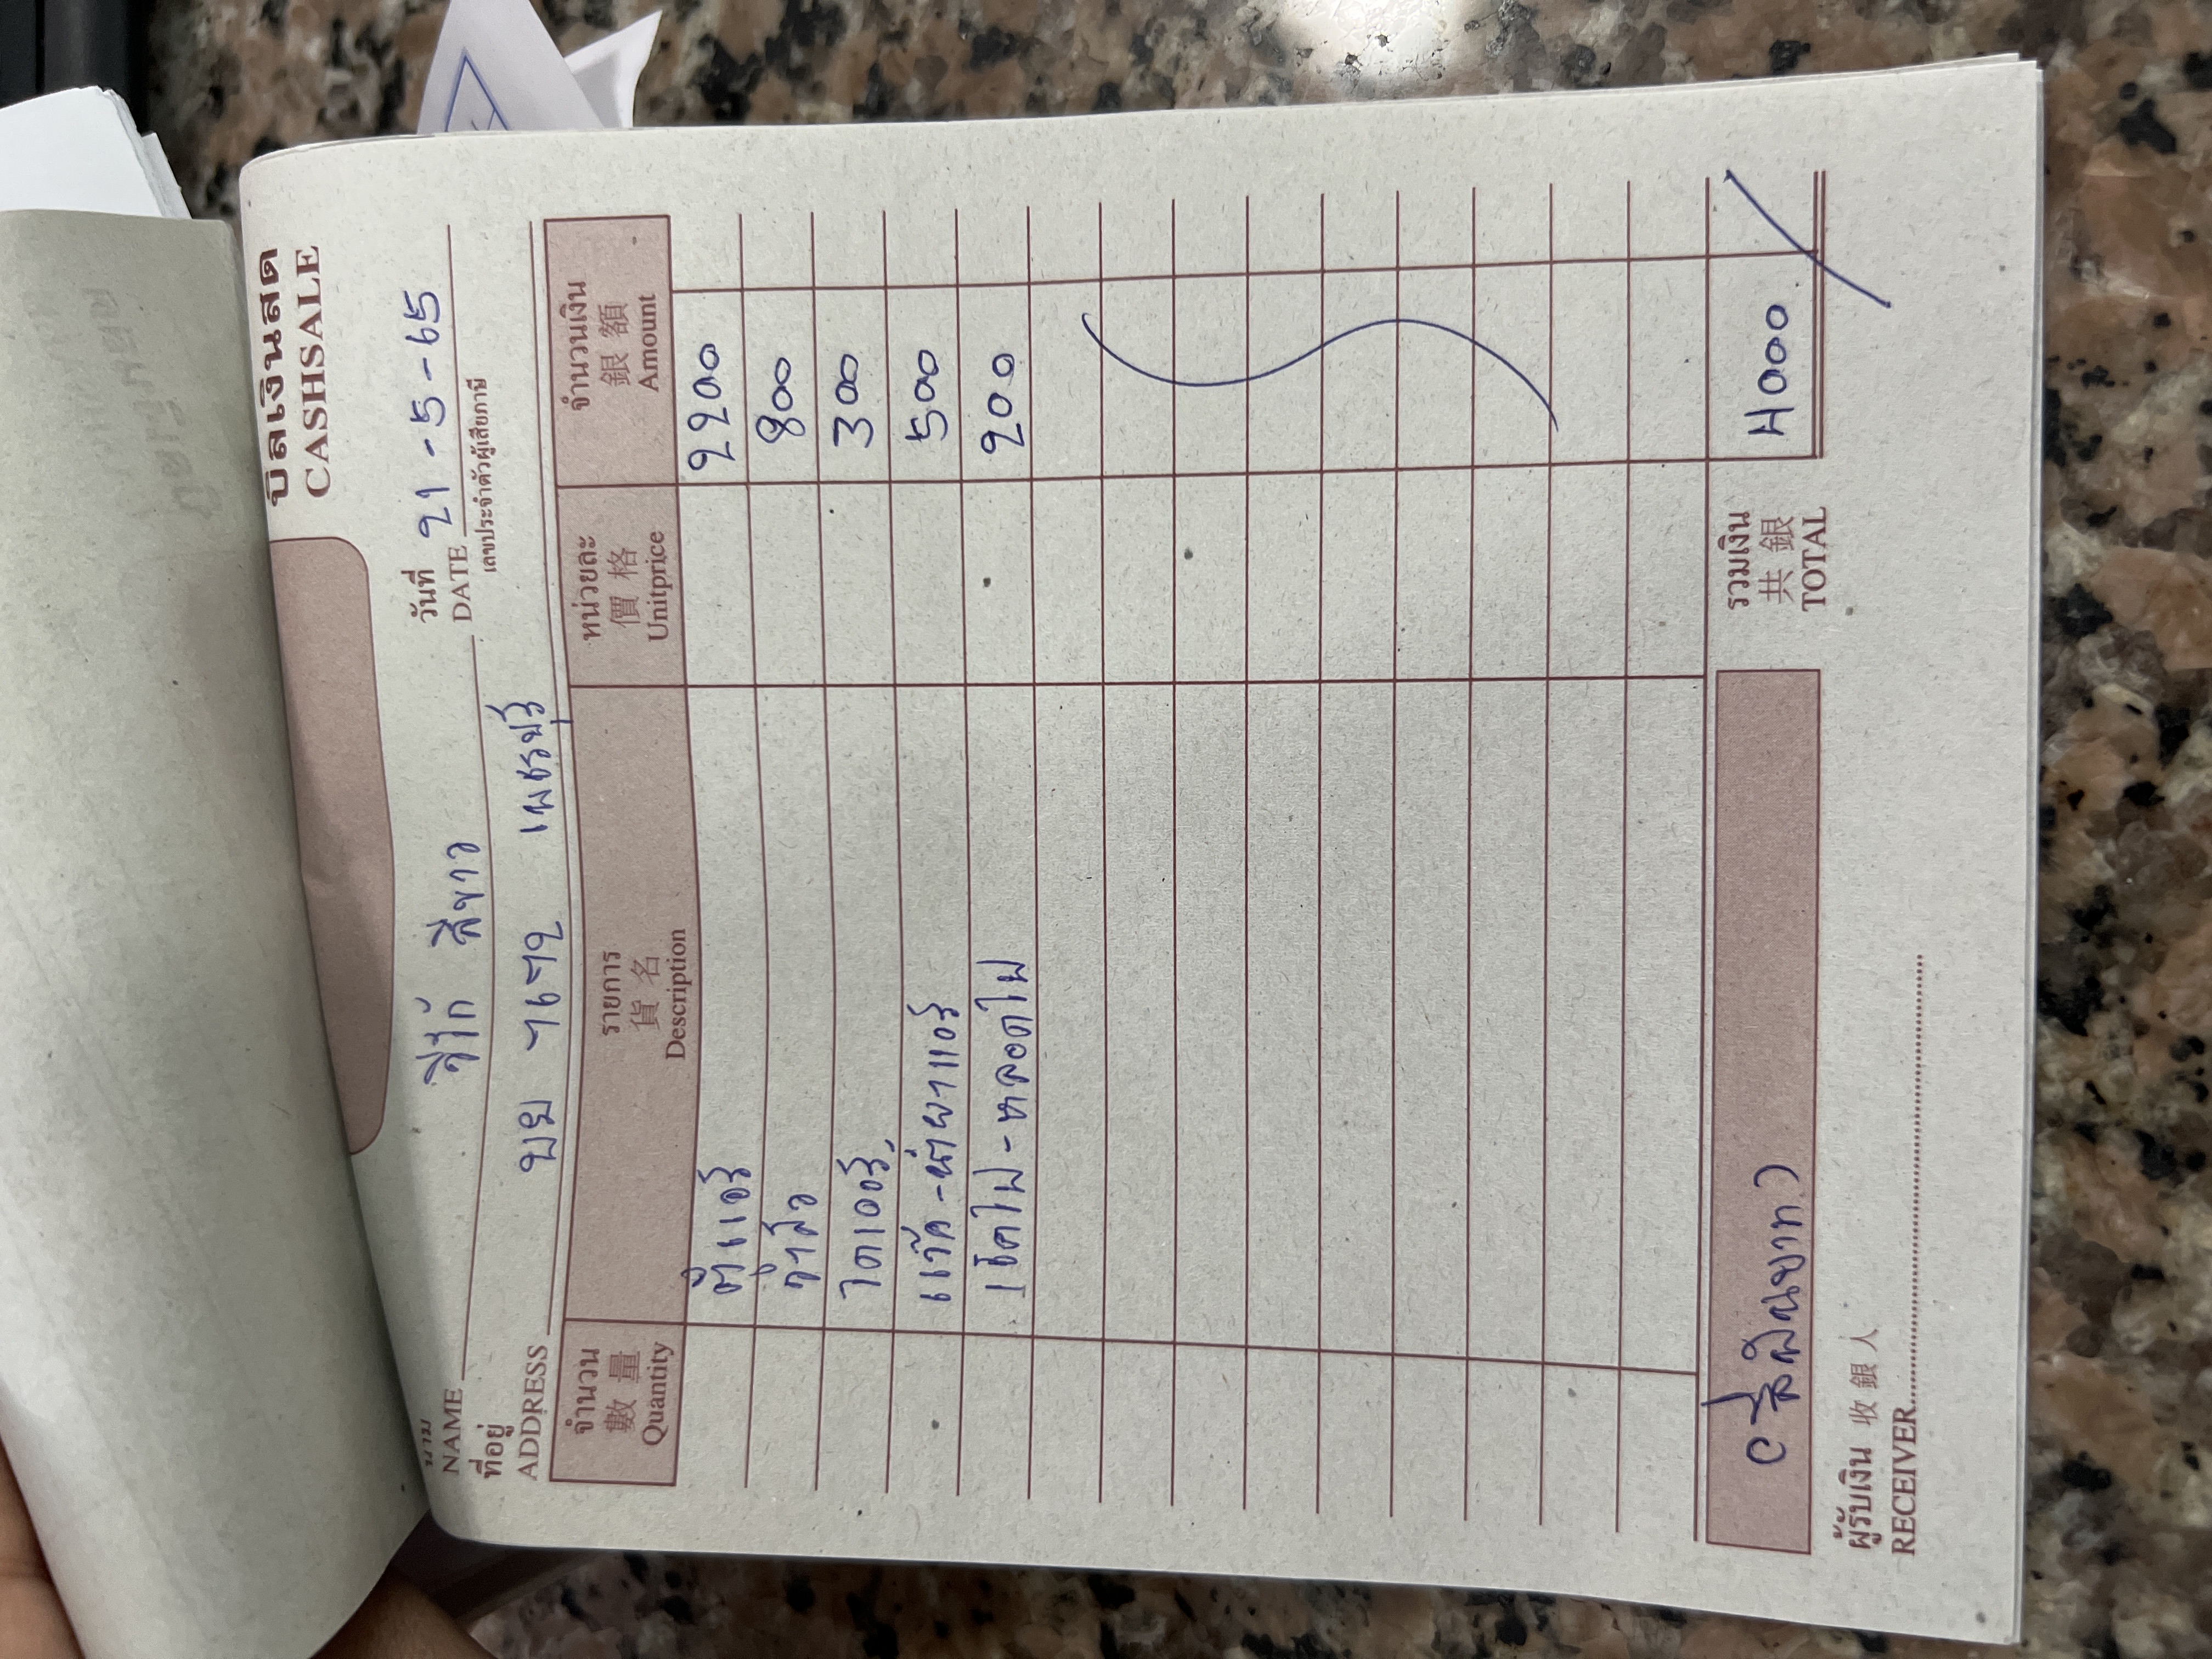 บิลเงินสด
CASHSALE
นาม
NAME
วีโก้ สีขาว
วันที่
DATE 21-5-65
ที่อยู่
ADDRESS
เพชรบุรี
เลขประจำตัวผู้เสียภาษี
จำนวน รายการ หน่วยละ จำนวนเงิน
數量 貨名 價格 銀額
Quantity Description Unitprice Amount
ตู้แอร์ 2200
วาล์ว 800
ไดเออร์ 300
แว๊ค-น้ำยาแอร์ 500
เช็คไฟ-หลอดไฟ 200
(สี่พันบาท)
รวมเงิน
共銀
TOTAL
4000
ผู้รับเงิน 收銀人
RECEIVER